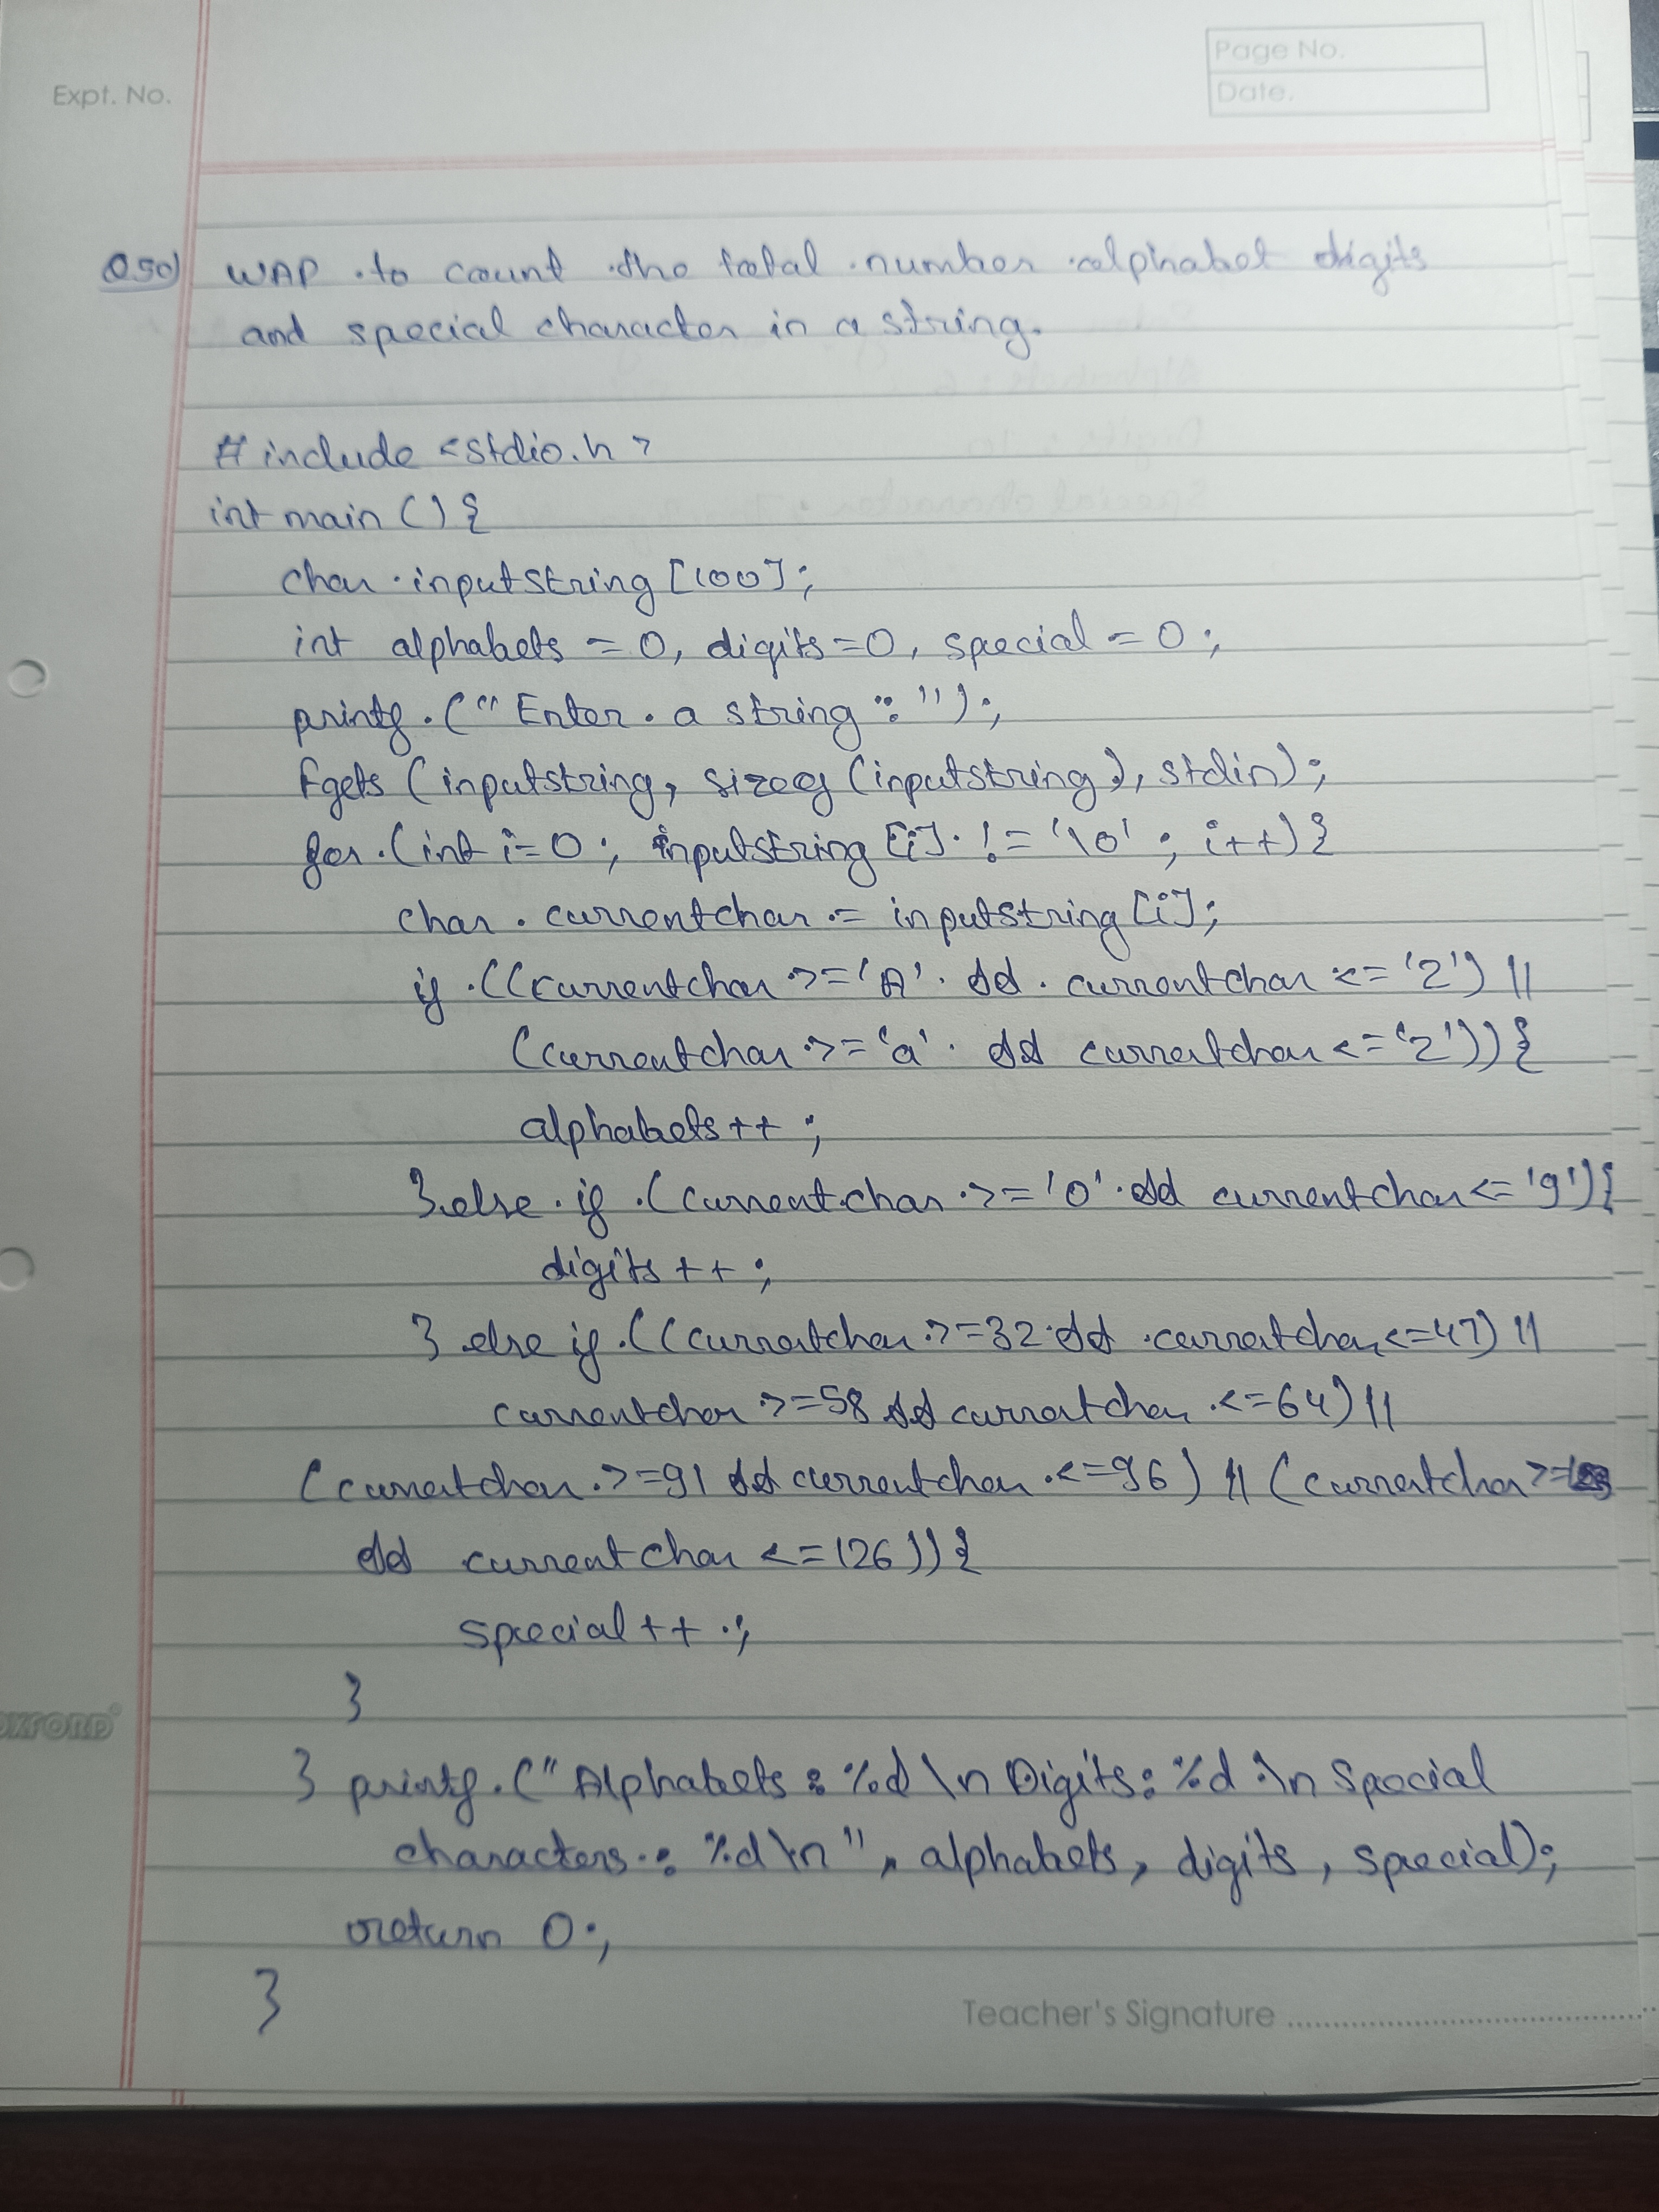 Page No.
Expt. No.
Date.
Q50) WAP to count the total number alphabet digits
and special character in a string.
# include <stdio.h>
int main () {
char inputstring [100];
int alphabets = 0, digits = 0, special = 0;
printf ("Enter a string : ");
fgets (inputstring, sizeof (inputstring), stdin);
for (int i = 0; inputstring [i] != '\0' ; i++) {
char currentchar = inputstring [i];
if ((currentchar >= 'A' && currentchar <= 'Z') ||
(currentchar >= 'a' && currentchar <= 'z')) {
alphabets ++ ;
} else if (currentchar >= '0' && currentchar <= '9') {
digits ++ ;
} else if ((currentchar >= 32 && currentchar <= 47) ||
currentchar >= 58 && currentchar <= 64) ||
(currentchar >= 91 && currentchar <= 96) || (currentchar >=
&& currentchar <= 126)) {
special ++ ;
}
} printf ("Alphabets : %d \n Digits : %d \n Special
characters : %d \n ", alphabets, digits, special);
return 0 ;
}
OXFORD
Teacher's Signature